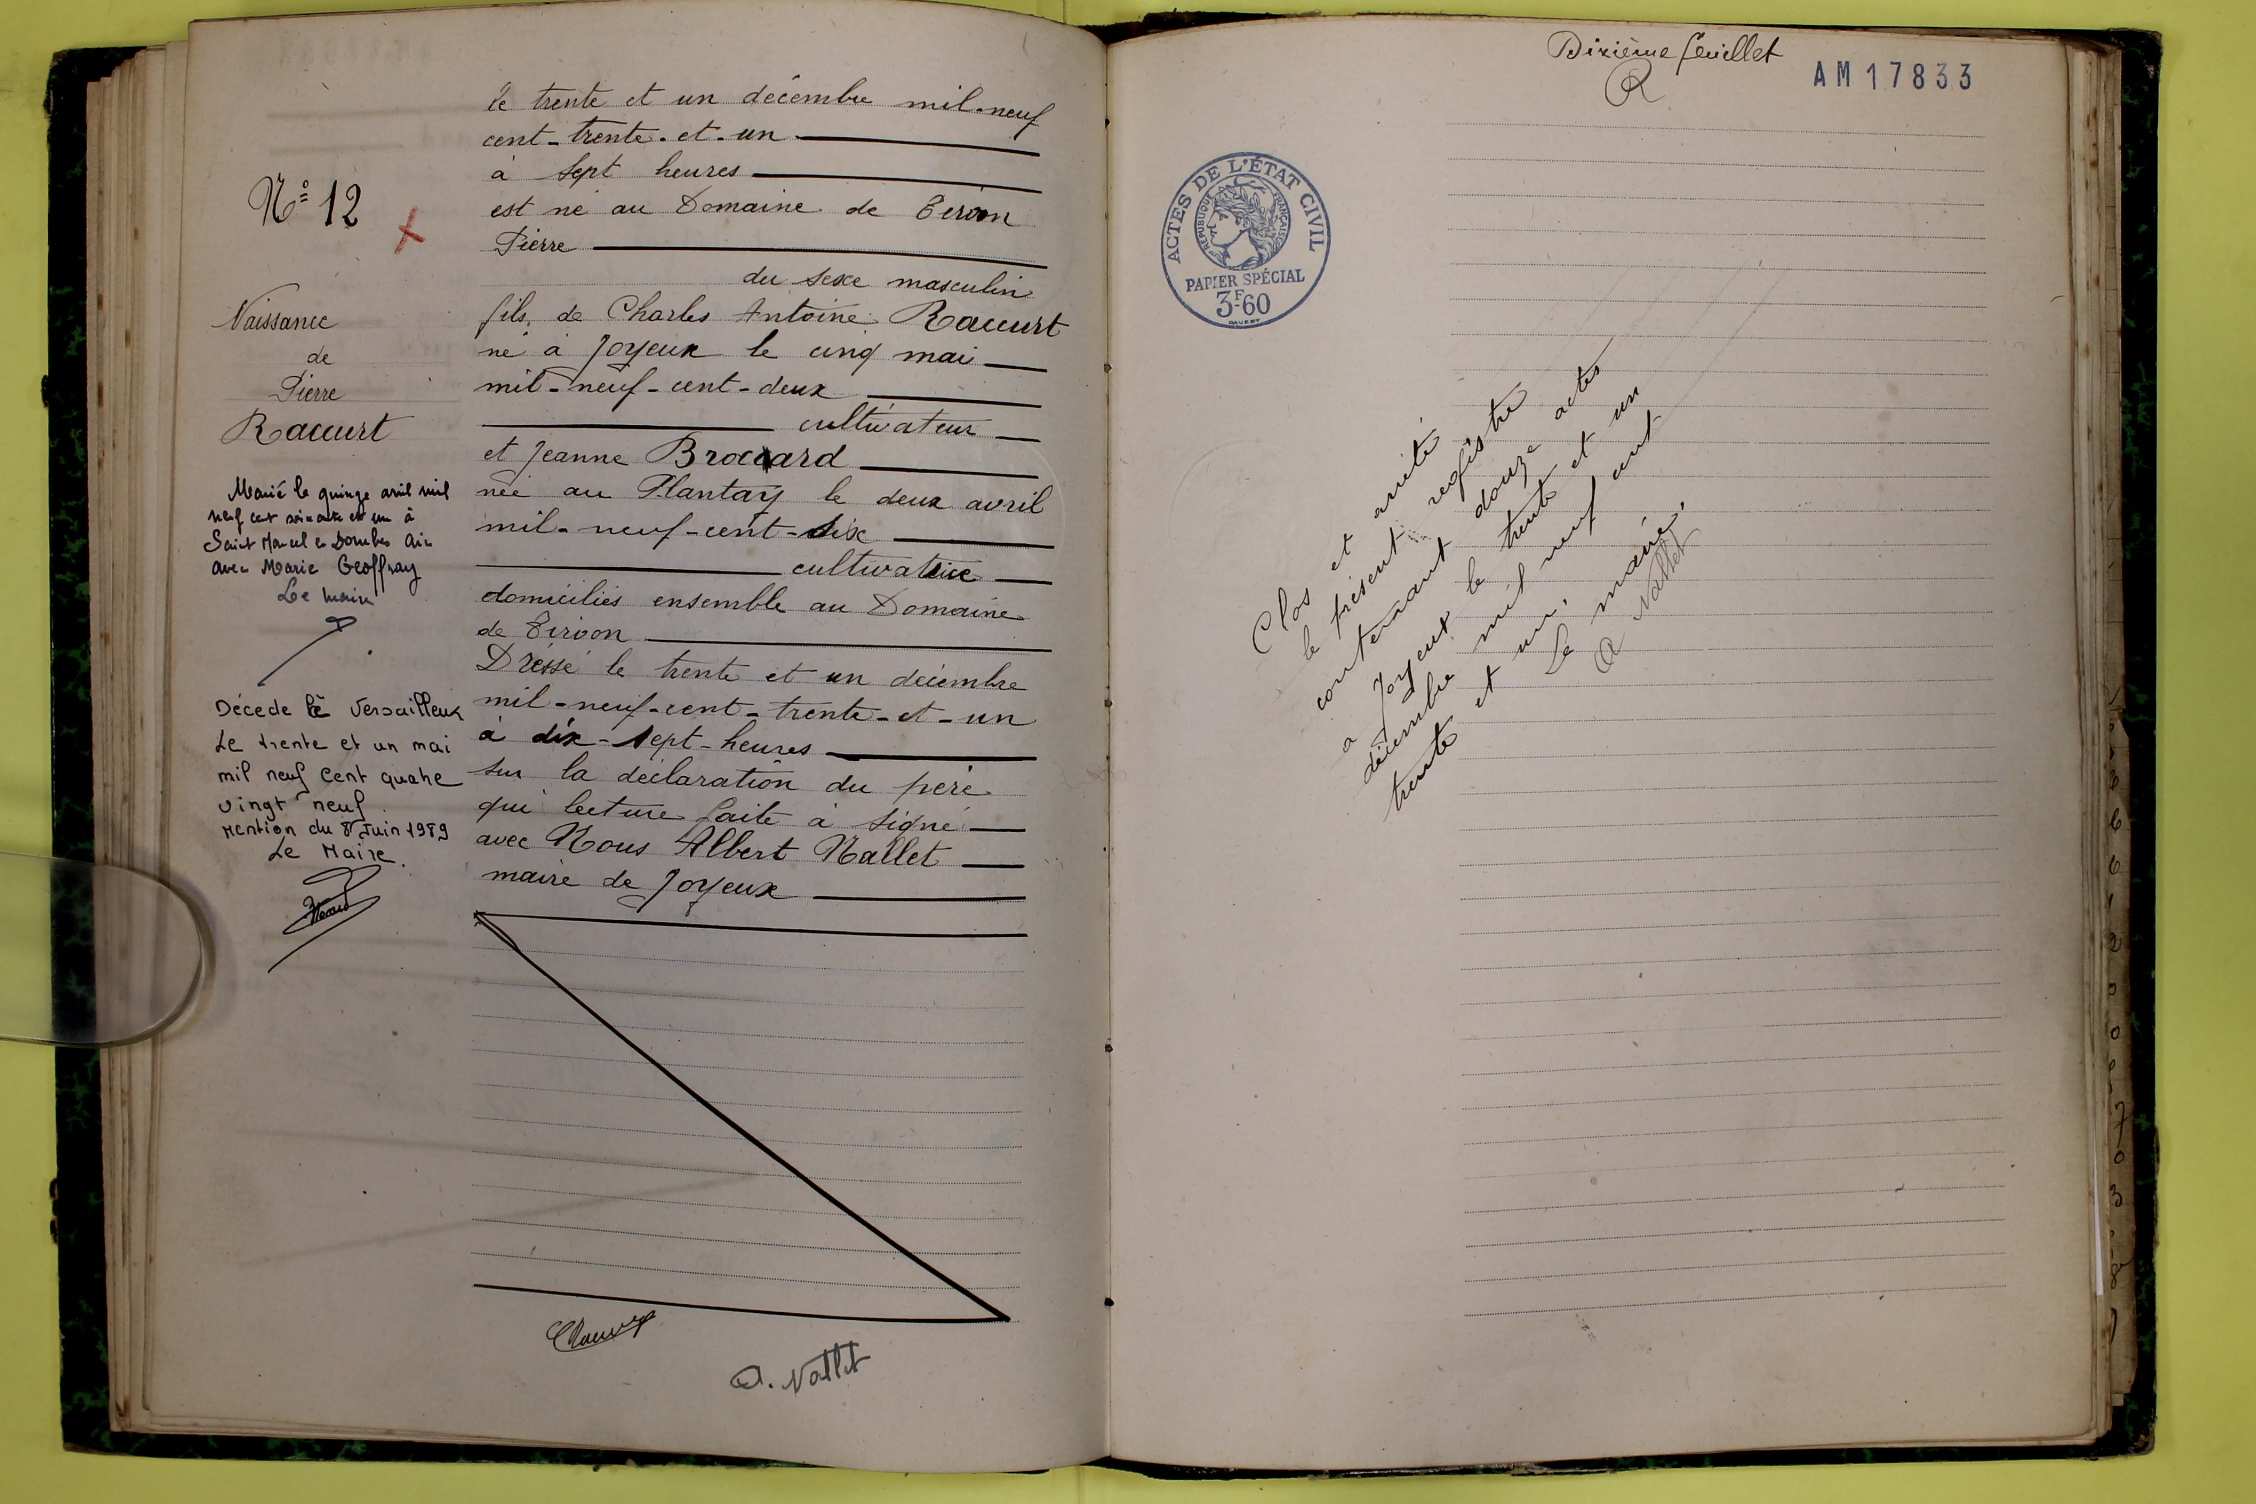 N° 12
Naissance
de
Pierre
Raccurt
Marié le quinze avril mil
neuf cent soixante et un à
Saint Marcel en Dombes Ain
avec Marie Geoffray
Le Maire
Décédé à Versailleux
Le trente et un mai
mil neuf cent quatre
vingt neuf
Mention du 8 Juin 1989
Le Maire.
Le trente et un décembre mil-neuf
cent-trente-et-un
à sept heures
est né au Domaine de
Pierre
du sexe masculin
fils de Charles Antoine Raccurt
né à Joyeux le cinq mai
mil-neuf-cent-deux
cultivateur
et Jeanne Brossard
née au Plantay le deux avril
mil-neuf-cent-six
cultivatrice
domiciliés ensemble au Domaine
de
Dréssé le trente et un décembre
mil-neuf-cent-trente-et-un
à dix-sept-heures
sur la déclaration du père
qui lecture faite à signé
avec Nous Albert Nallet
maire de Joyeux
A. Nallet
Dixième feuillet
AM17833
ACTES DE L'ÉTAT CIVIL
RÉPUBLIQUE FRANÇAISE
PAPIER SPÉCIAL
3F-60
Clos et arrêté
le présent registre
contenant douze actes
a Joyeux le trente et un
décembre mil neuf cent
trente et un.
Le maire,
A Nallet